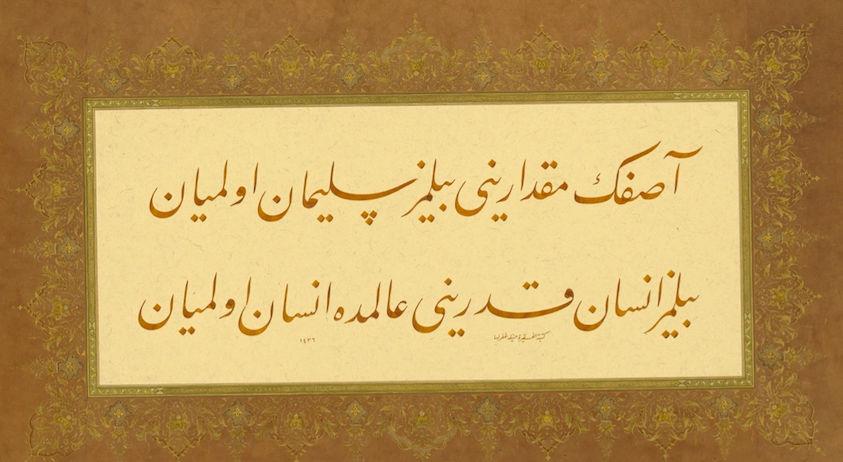 آصفك مقدارينى بيلمز سليمان اولميان
بيلمز انسان قدرينى عالمده انسان اولميان
١٤٣٦